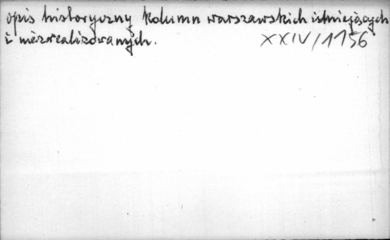 opis historyczny kolumn warszawskich istniejących
i niezrealizowanych.
XXIV/1156